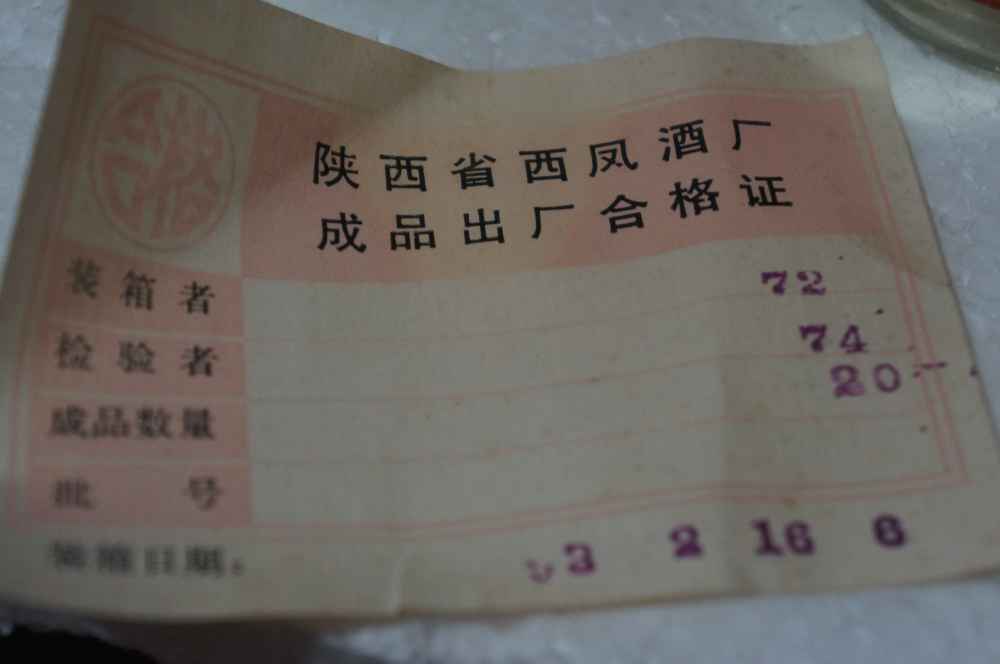 陕西省西凤酒厂
成品出厂合格证
装箱者 72
检验者 74
成品数量 20
批号
装箱日期: 3 2 16 6